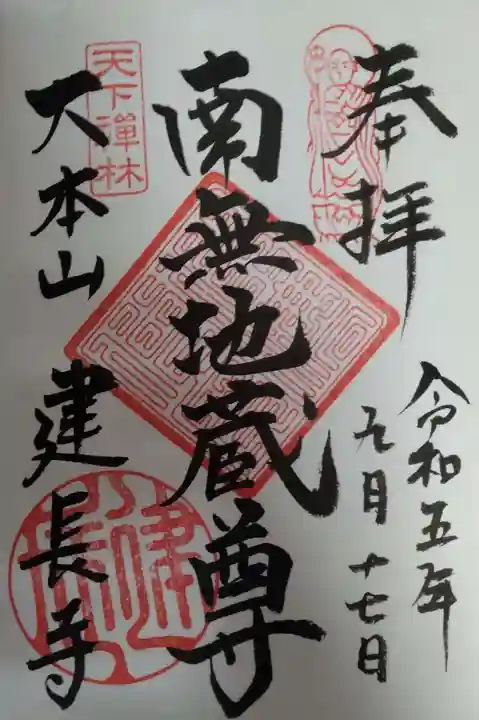 奉拝
令和五年
九月十七日
南無地蔵尊
天下禅林
大本山建長寺